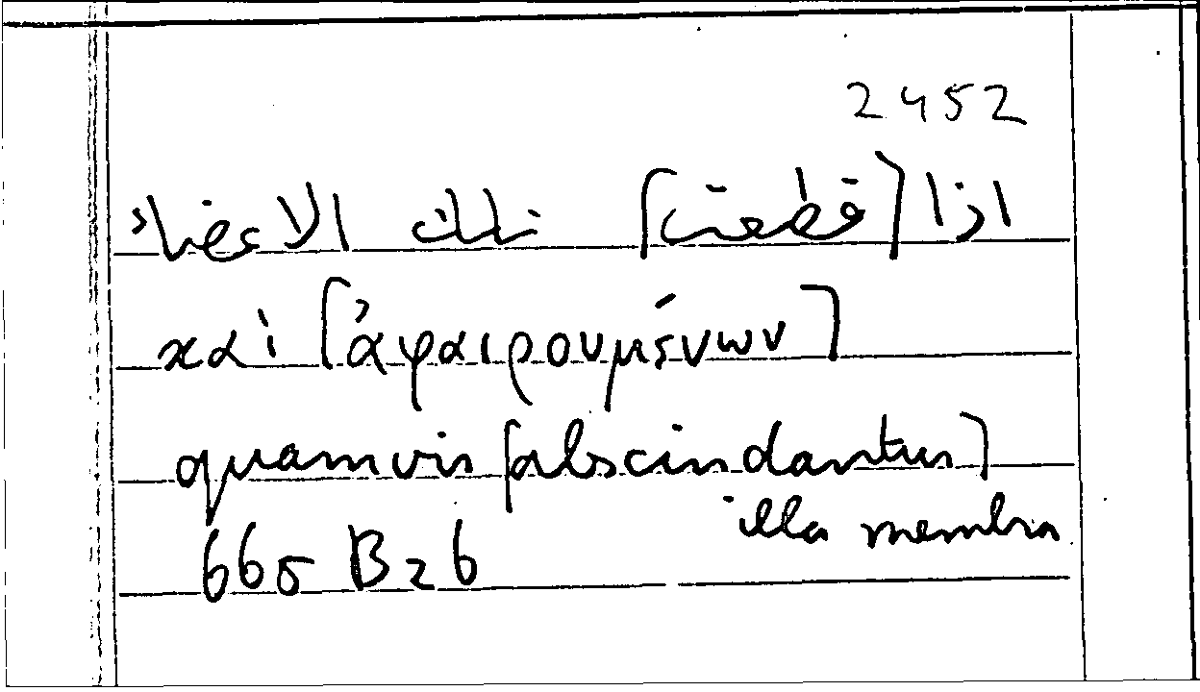 2452
اذا [قطعت] تلك الاعضاء
καὶ [ἀφαιρουμένων]
quamvis [abscindantur]
illa membra
665 B26